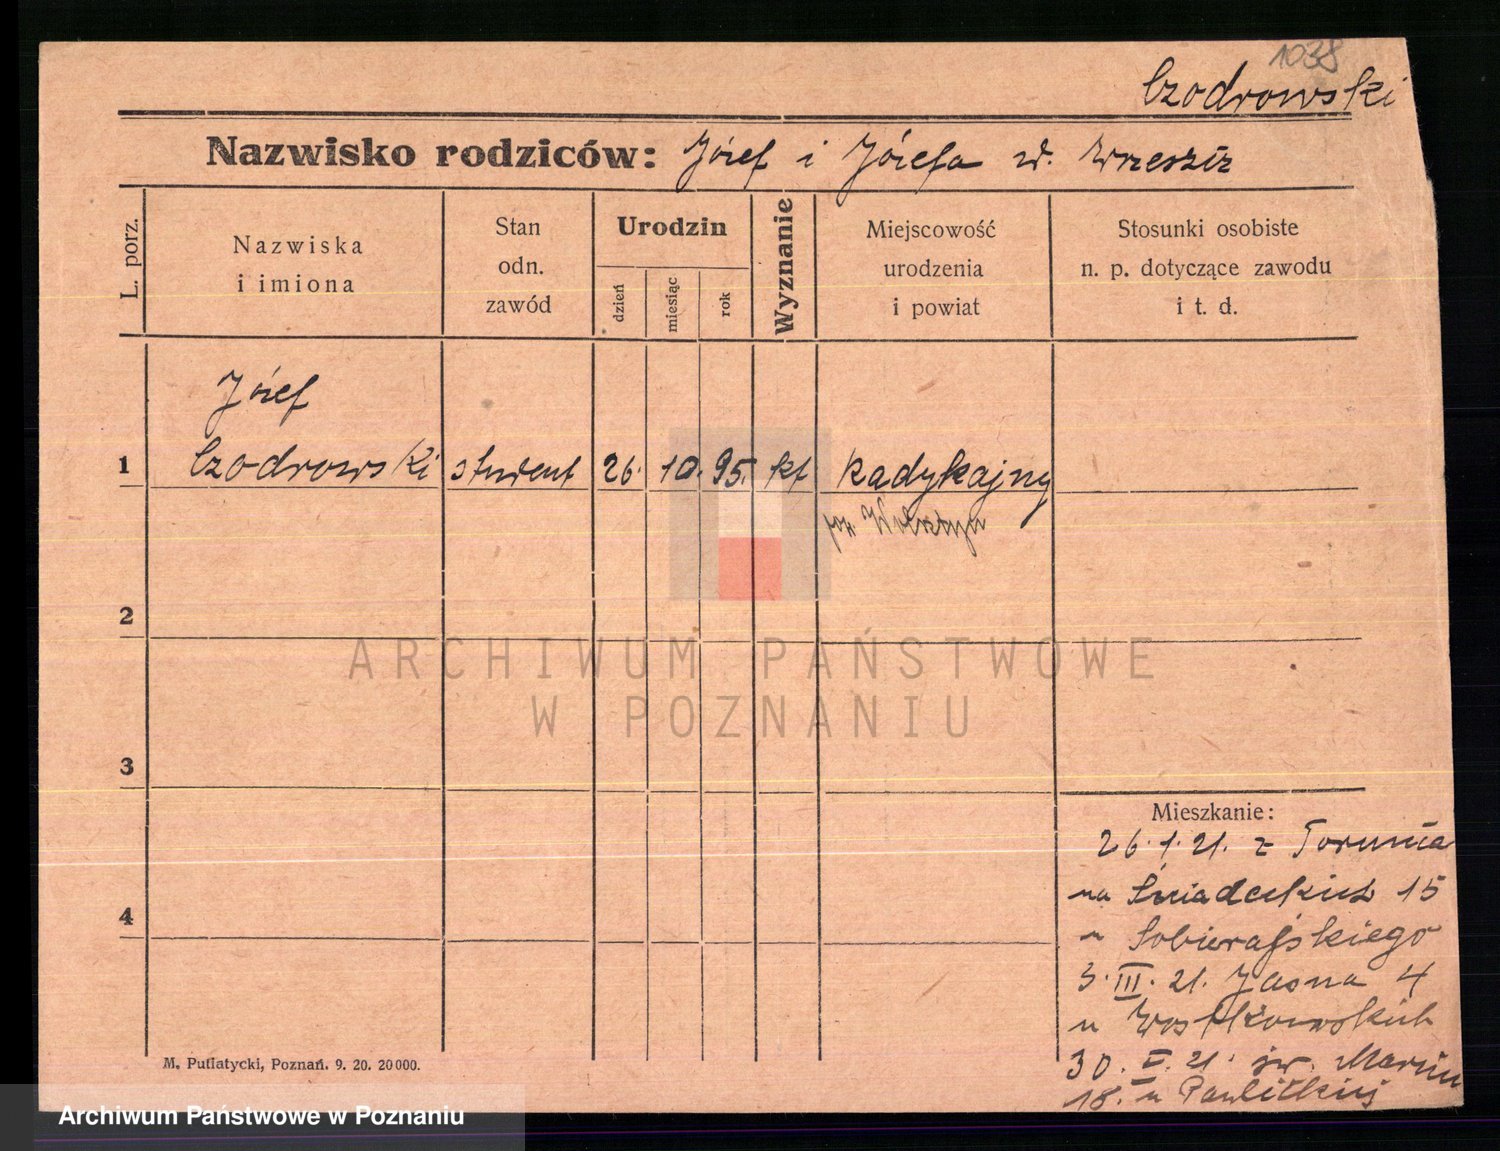 1038
Czodrowski
Nazwisko rodziców: Józef i Józefa
L. porz.
Nazwiska
i imiona
Stan
odn.
zawód
Urodzin
dzień
miesiąc
rok
Wyznanie
Miejscowość
urodzenia
i powiat
Stosunki osobiste
n. p. dotyczące zawodu
i t. d.
Józef
1 Czodrowski student 26. 10. 95. kt
2
3
4
ARCHIWUM PAŃSTWOWE
W POZNANIU
Mieszkanie:
26.1.21. z Torunia
na Śniadeckich 15
u Sobierajskiego
3.III.21. Jasna 4
u
30. V. 21. św. Marcin
18. u
M. Putiatycki, Poznań. 9. 20. 20000.
Archiwum Państwowe w Poznaniu